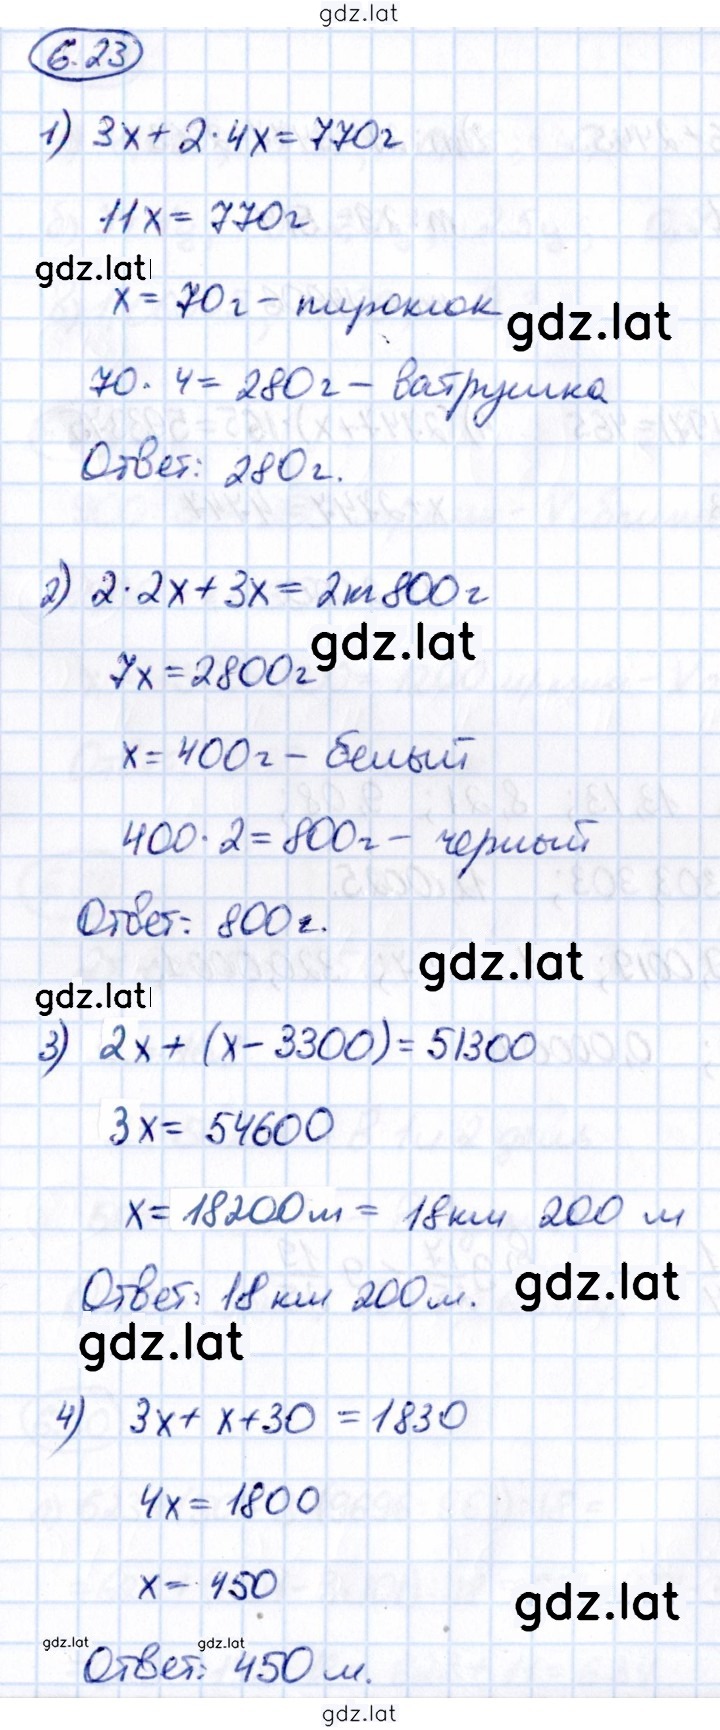 gdz.lat
6.23
1) 3x + 2·4x = 770г
11x = 770г
gdz.lat
x = 70г – пирожок
gdz.lat
70·4 = 280г – ватрушка
Ответ: 280г.
2) 2·2x + 3x = 2кг 800г
gdz.lat
7x = 2800г
x = 400г – белый
400·2 = 800г – черный
Ответ: 800г.
gdz.lat
gdz.lat
3) 2x + (x – 3300) = 51300
3x = 54600
x = 18200м = 18км 200 м
gdz.lat
Ответ: 18 км 200м.
gdz.lat
4) 3x + x + 30 = 1830
4x = 1800
x = 450
gdz.lat
gdz.lat gdz.lat
Ответ: 450 м.
gdz.lat